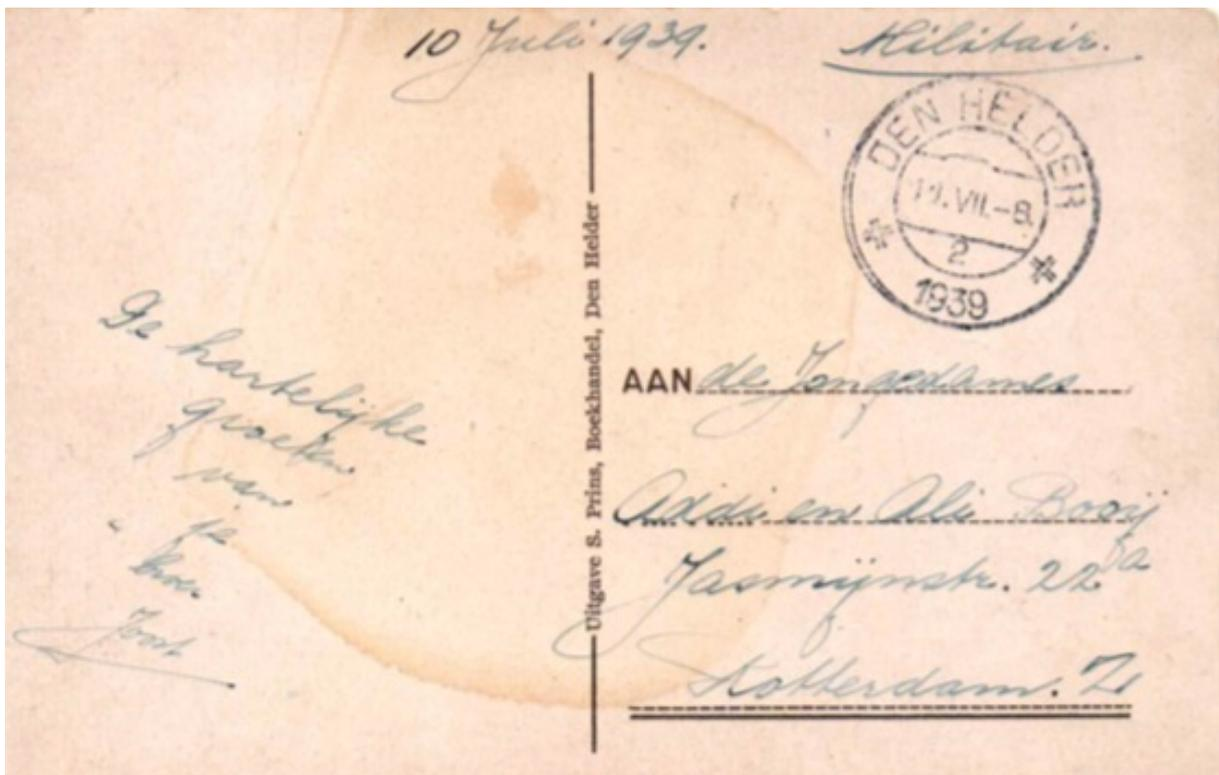 10 Juli 1939.
Militair.
DEN HELDER
VII.-8.
2
1939
De hartelijke
groeten
van
je
Joost
Uitgave S. Prins, Boekhandel, Den Helder
AAN de Jongedames
Addi en Ali Booij
Jasmijnstr. 22a
Rotterdam. Z.